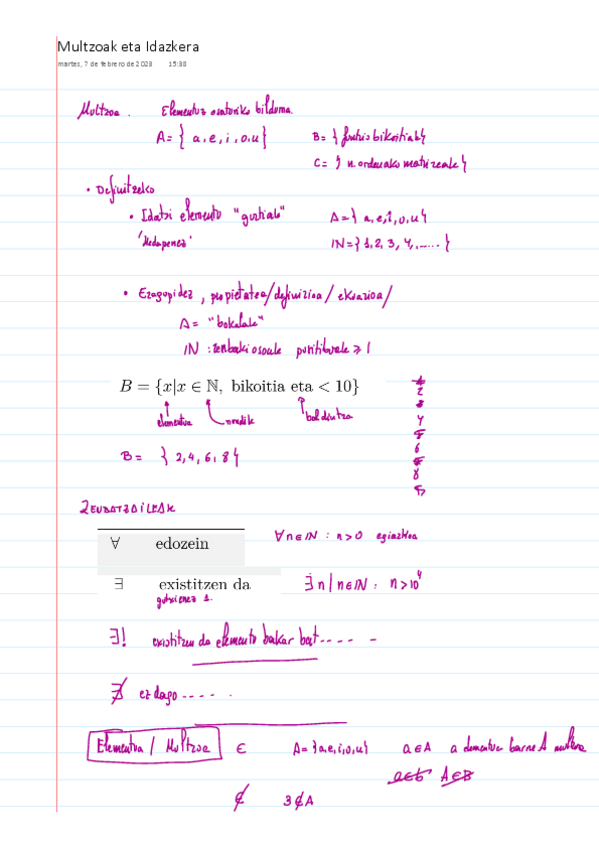 Multzoak eta Idazkera
martes, 7 de febrero de 2023 15:30
Multzoa. Elementuz osatoriko bilduma.
A = { a, e, i, o, u } B = { bikoitiak }
C = { n. ordenako matrizeak }
• Definitzeko
• Idatzi elementu "guztiak" A = { a, e, i, o, u }
'Hedapenez' IN = { 1, 2, 3, 4, ..... }
• Ezagupidez, propietatea/definizioa/ekuazioa/
A = "bokalak"
IN : zenbaki osoak positiboak ≥ 1
B = {x|x ∈ ℕ, bikoitia eta < 10}
elementua nondik baldintza
B = { 2, 4, 6, 8 }
1
2
3
4
5
6
7
8
9
ZENBATZAILEAK
∀ edozein ∀ n ∈ IN : n > 0 egiazkoa
∃ existitzen da ∃ n | n ∈ IN : n > 10⁴
gutxienez 1.
∃! existitzen da elementu bakar bat .... -
∄ ez dago .... .
Elementua / Multzoa ∈ A = {a, e, i, o, u} a ∈ A a elementua barne A multzoa
a∈b A∈B
∉ 3 ∉ A